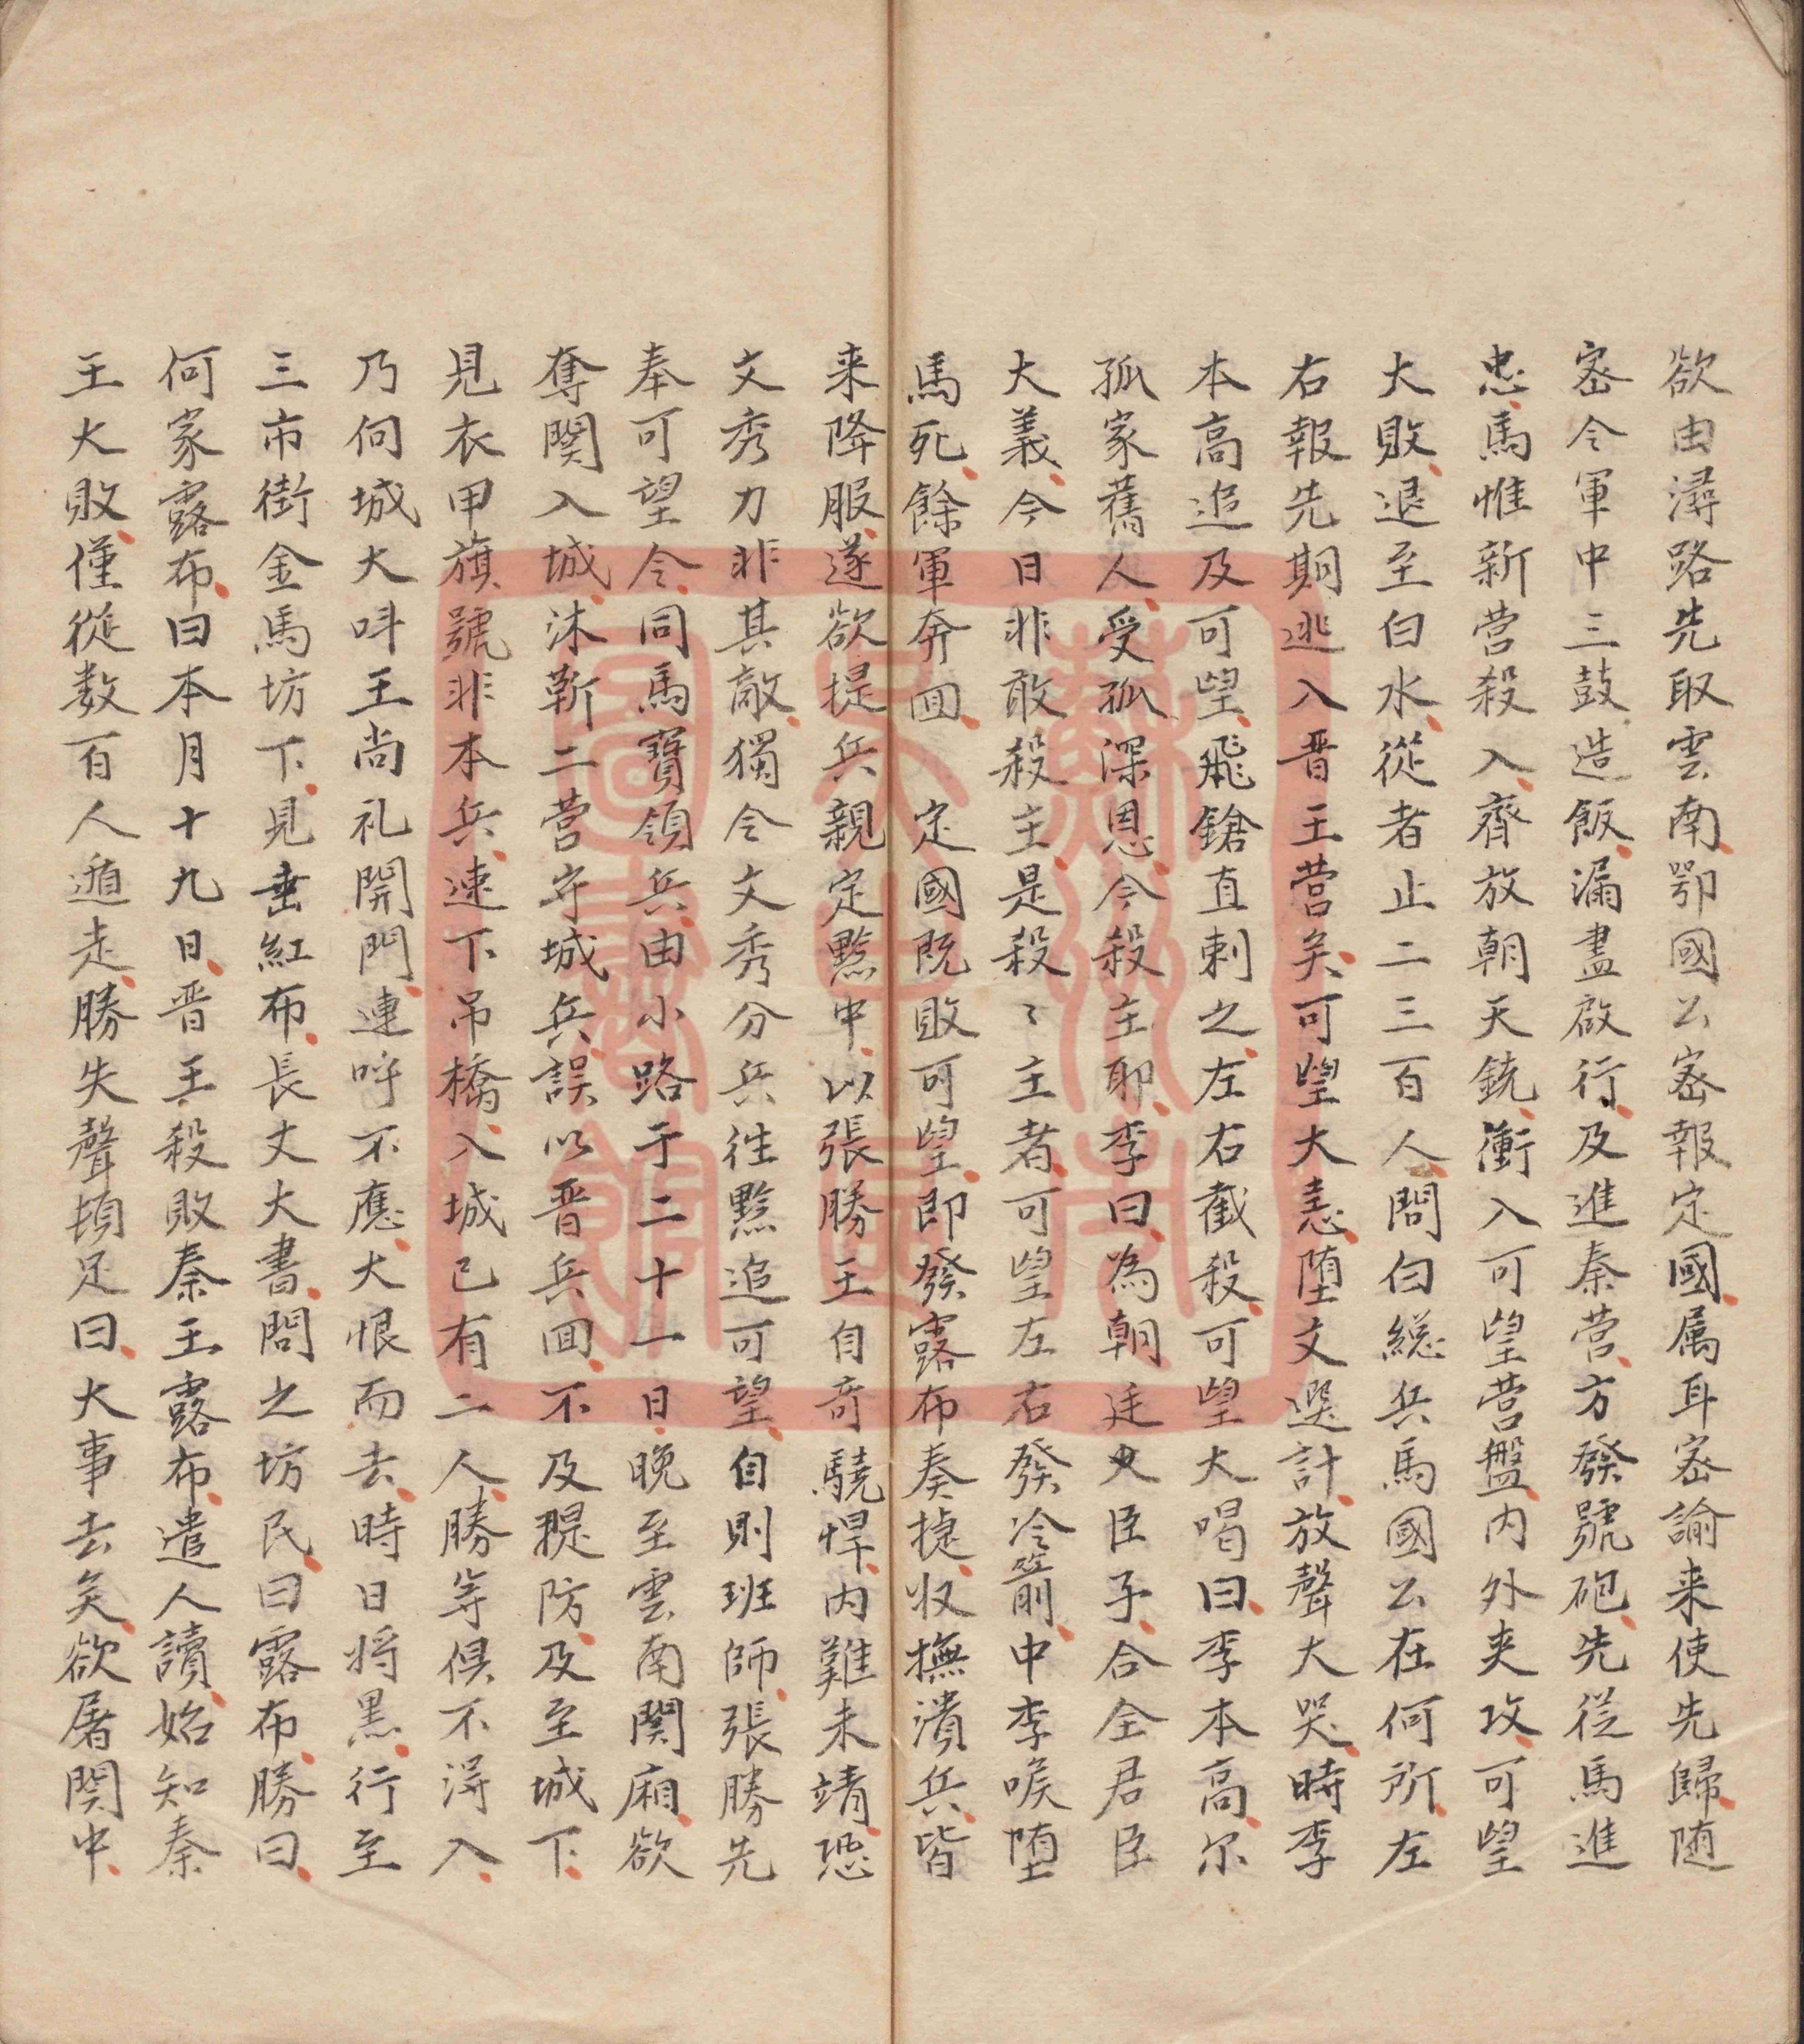 欲由潯路先取雲南鄂國公密報定國属耳密諭来使先歸随
密令軍中三鼓造飯漏盡啟行及進秦营方發號砲先從馬進
忠馬惟新营殺入齊放朝天銃衝入可望营盤内外夹攻可望
大敗退至白水從者止二三百人問曰總兵馬國公在何所左
右報先期逃入晋王营矣可望大恚堕文選計放聲大哭時李
本高追及可望飛鎗直刺之左右截殺可望大喝曰李本高尔
孤家舊人受孤深恩今殺主耶李曰為朝廷大臣子合全君臣
大義今日非敢殺主是殺〻主者可望左右發冷箭中李喉堕
馬死餘軍奔囬 定國既敗可望即發露布奏捷收撫潰兵皆
来降服遂欲提兵親定黔中以張勝王自奇驍悍内難未靖恐
文秀力非其敵獨令文秀分兵徃黔追可望自則班師張勝先
奉可望令同馬寶領兵由小路于二十一日晚至雲南関廂欲
奪関入城沐靳二营守城兵誤以晋兵囬不及提防及至城下
見衣甲旗號非本兵速下吊橋入城已有二人勝等俱不淂入
乃向城大呌王尚礼開門連呼不應大恨而去時日将黑行至
三市街金馬坊下見垂紅布長丈大書問之坊民曰露布勝曰
何家露布曰本月十九日晋王殺敗秦王露布遣人讀始知秦
王大敗僅從数百人遁走勝失聲頓足曰大事去矣欲屠関中
蘇州市
吳中區
圖書館